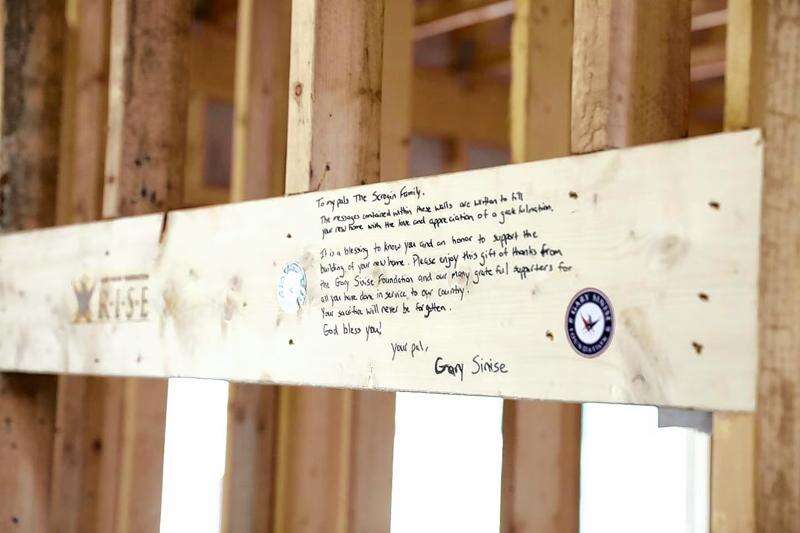 To my pals The Scrogin Family,
The messages contained within these walls are written to fill
your new home with the love and appreciation of a grateful nation.
It is a blessing to know you and an honor to support the
building of your new home. Please enjoy this gift of thanks from
the Gary Sinise Foundation and our many grateful supporters for
all you have done in service to our country.
Your sacrifice will never be forgotten.
God bless you!
Your pal,
Gary Sinise
R·I·S·E
GARY SINISE
FOUNDATION